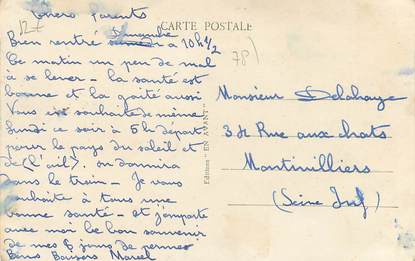 127
Chers Parents
CARTE POSTALE
Dimanche
Bien rentré samedi à 10h 1/2
78)
Ce matin un peu de mal
à se lever - la santé est
bonne et la gaité aussi
Vous souhaite de même
Lundi ce soir à 5h départ
pour le pays du soleil et
de (l'ail); on dormira
dans le train - Je vous
souhaite à tous une
bonne santé - et j'emporte
avec moi le bon souvenir
de mes 6 jours de permes
Bons Baisers Marcel
Editions "EN AVANT"
Monsieur Delahaye
3 de Rue aux chats
Montivilliers
(Seine Inf)